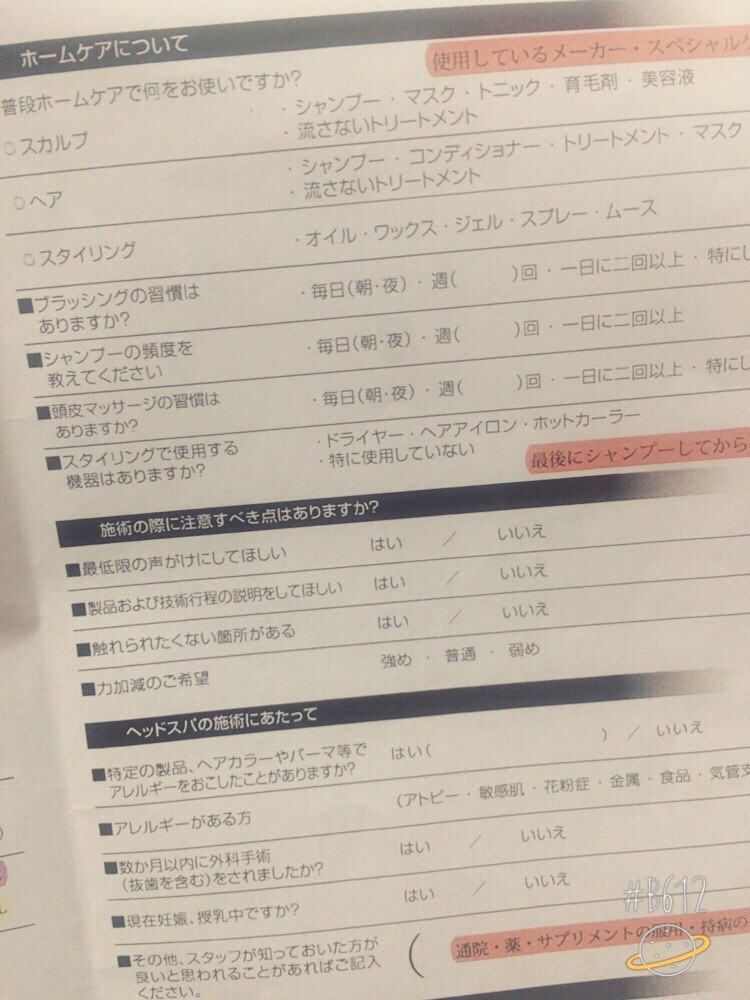 ホームケアについて
使用しているメーカー・スペシャルケ
普段ホームケアで何をお使いですか?
○スカルプ
・シャンプー・マスク・トニック・育毛剤・美容液
・流さないトリートメント
○ヘア
・シャンプー・コンディショナー・トリートメント・マスク
・流さないトリートメント
○スタイリング
・オイル・ワックス・ジェル・スプレー・ムース
■ブラッシングの習慣は
ありますか?
・毎日(朝・夜)・週( )回・一日に二回以上・特にし
■シャンプーの頻度を
教えてください
・毎日(朝・夜)・週( )回・一日に二回以上
■頭皮マッサージの習慣は
ありますか?
・毎日(朝・夜)・週( )回・一日に二回以上・特にし
■スタイリングで使用する
機器はありますか?
・ドライヤー・ヘアアイロン・ホットカーラー
・特に使用していない
最後にシャンプーしてから
施術の際に注意すべき点はありますか?
■最低限の声がけにしてほしい はい / いいえ
■製品および技術行程の説明をしてほしい はい / いいえ
■触れられたくない箇所がある はい / いいえ
■力加減のご希望 強め・普通・弱め
ヘッドスパの施術にあたって
■特定の製品、ヘアカラーやパーマ等で
アレルギーをおこしたことがありますか?
はい( ) / いいえ
■アレルギーがある方
(アトピー・敏感肌・花粉症・金属・食品・気管支
■数か月以内に外科手術
(抜歯を含む)をされましたか?
はい / いいえ
■現在妊娠、授乳中ですか?
はい / いいえ
■その他、スタッフが知っておいた方が
良いと思われることがあればご記入
ください。
(
通院・薬・サプリメントの服用・持病の
#B612